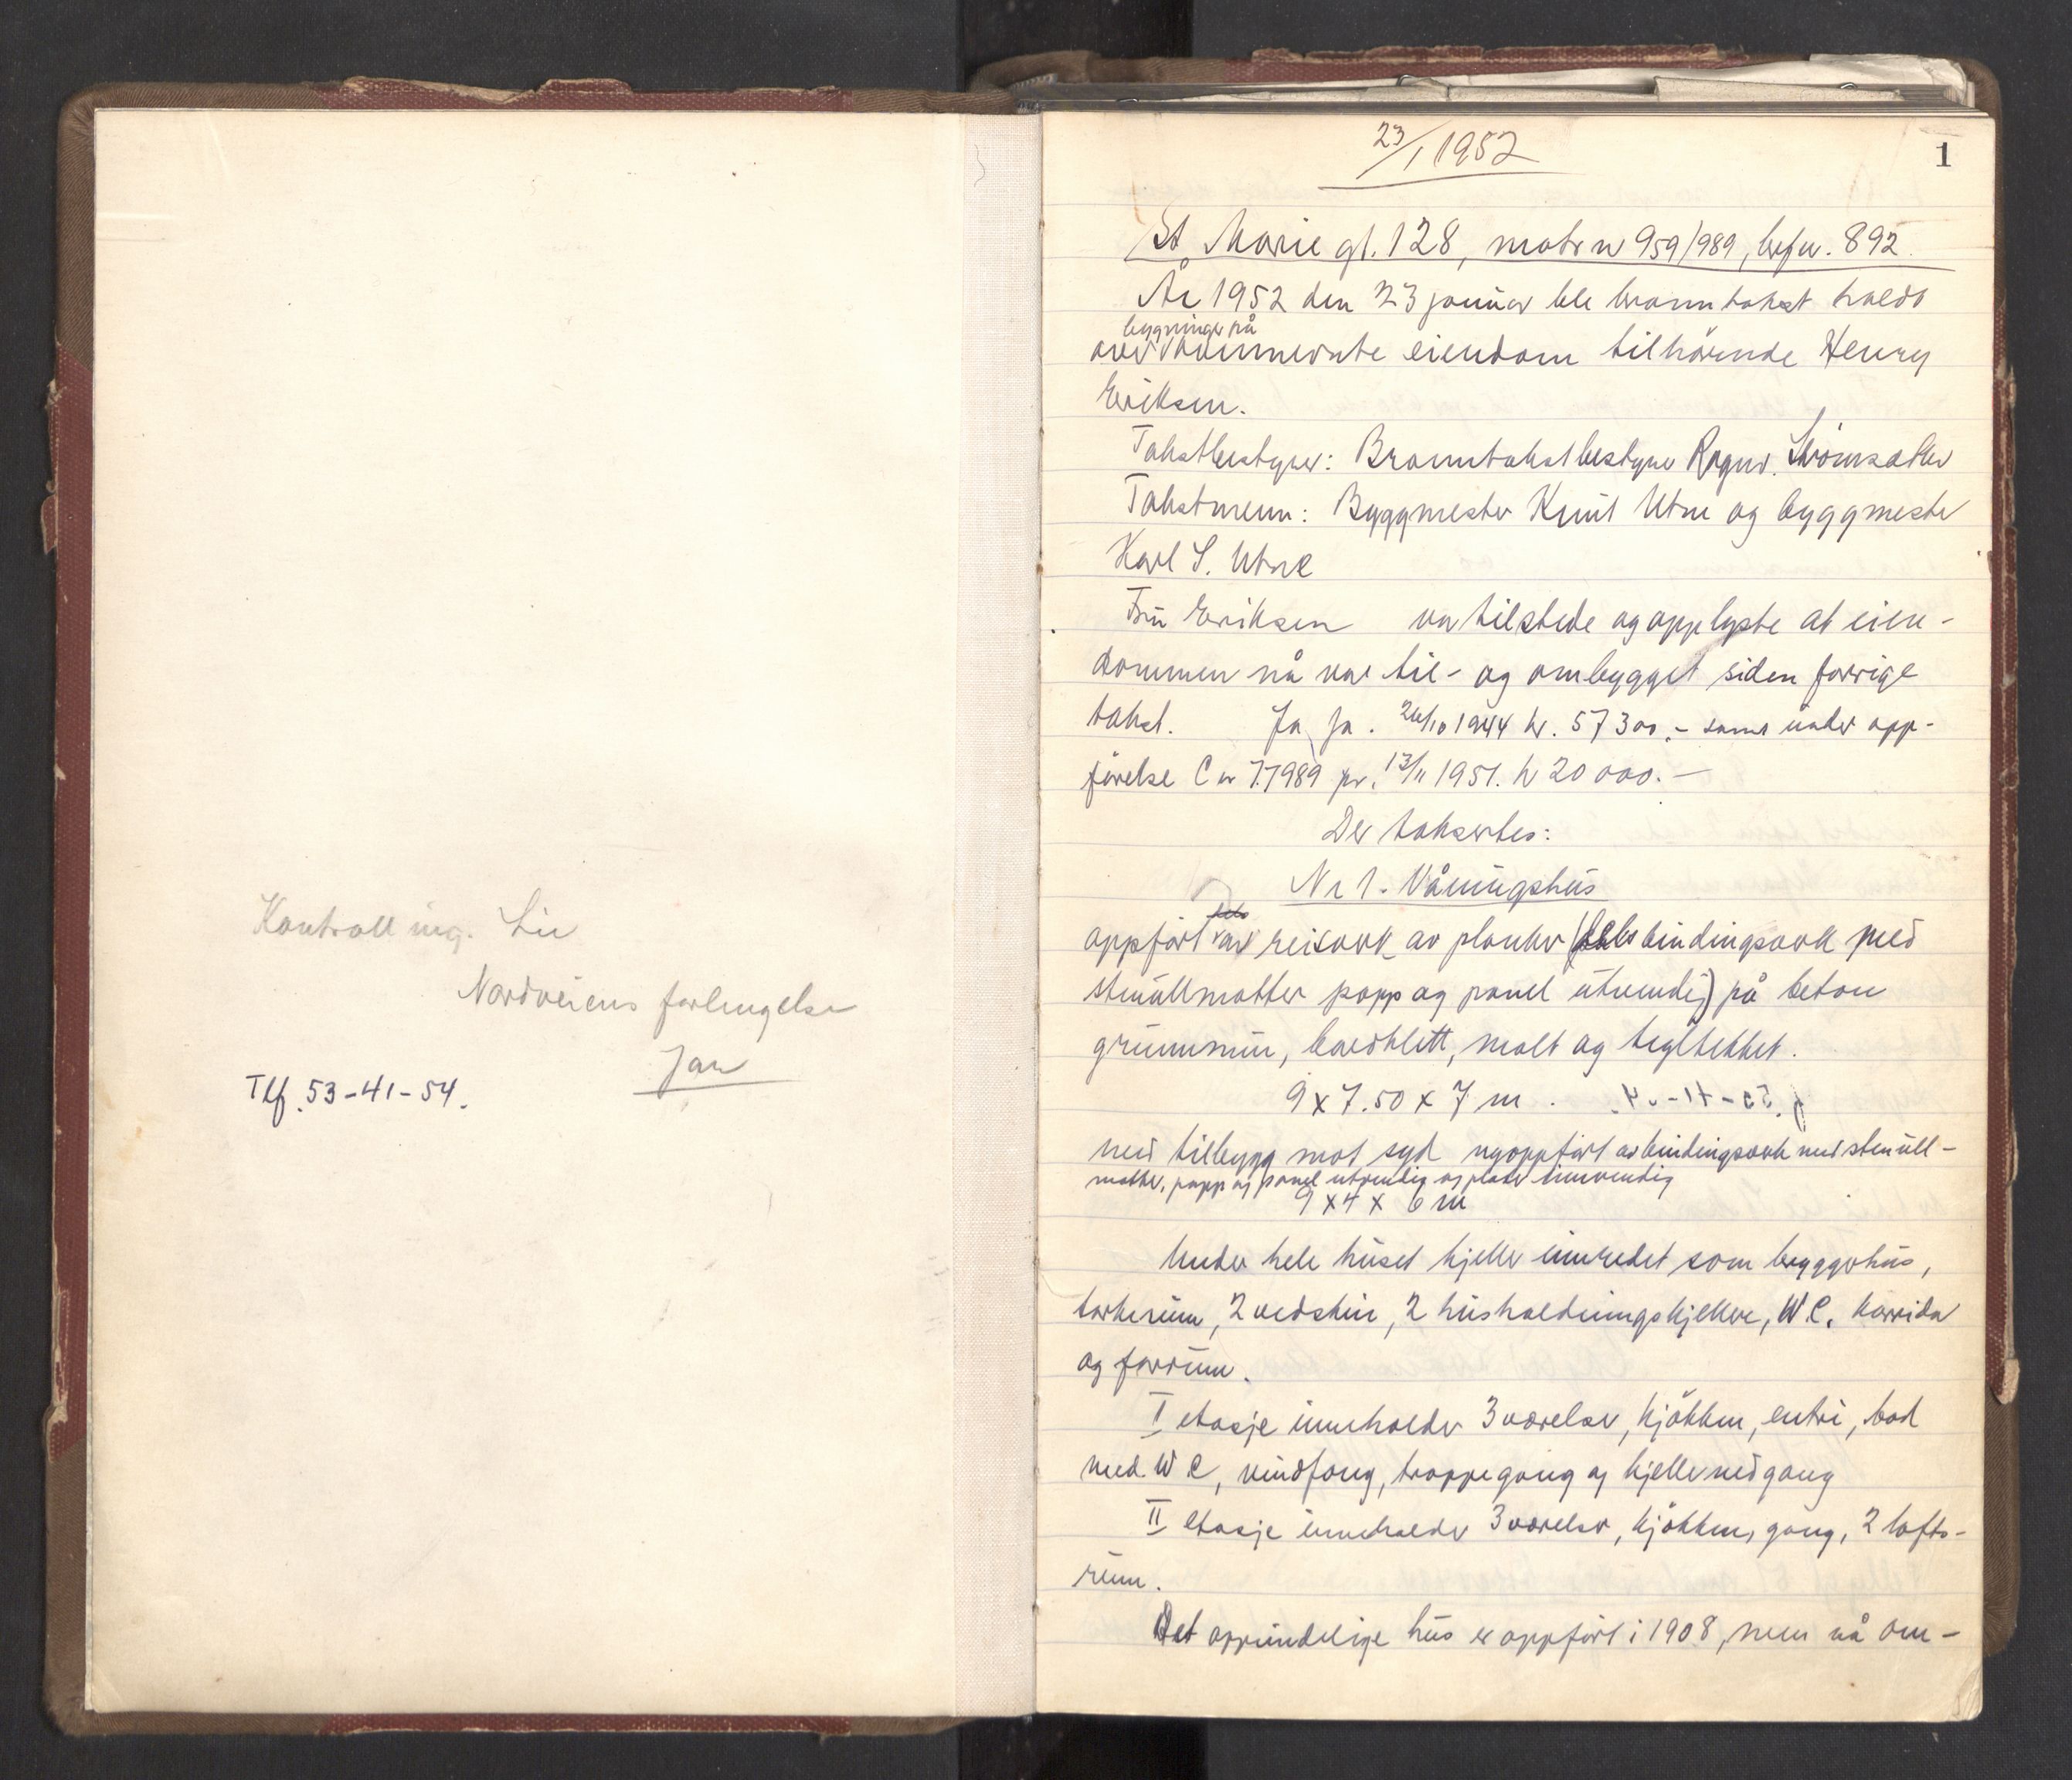 Kontroll ing. Lie
Nordveiens forlengelse
Jar
Tlf. 53-41-54.
1
23/1 1952
St. Marie gt. 128, matr nr 959/989, brf nr. 892.
År 1952 den 23 januar ble branntakst holdt
over bygninger på ovennevnte eiendom tilhörende Henry
Eriksen.
Takstbestyrer: Branntakstbestyrer Ragnv. Strömsæther
Takstmenn: Byggmester Knut Utne og byggmester
Karl S. Utne
Fru Eriksen var tilstede og opplyste at eien-
dommen nå var til- og ombygget siden forrige
takst. 26/10 1944 kr. 57300.- samt under opp-
förelse 13/11 1951. kr 20000.-
Der taksertes:
Nr 1. Våningshus
oppfört av reisverk av planker (dels bindingsverk med
stenullmatter papp og panel utvendig) på beton
grunnmur, bordklett, malt og tegltekket.
9 x 7.50 x 7 m.
med tilbygg mot syd nyoppfört av bindingsverk med stenull-
matter, papp og panel utvendig og plater innvendig
9 x 4 x 6 m
Under hele huset kjeller innredet som bryggerhus,
törkerum, 2 vedskur, 2 husholdningskjellere, W.C. korridor
og forrum.
I etasje inneholder 3 værelser, kjökken, entré, bad
med W C, vindfang, trappegang og kjellernedgang
II etasje inneholder 3 værelser, kjökken, gang, 2 lofts-
rum.
Det opprindelige hus er oppfört i 1908, men nå om-